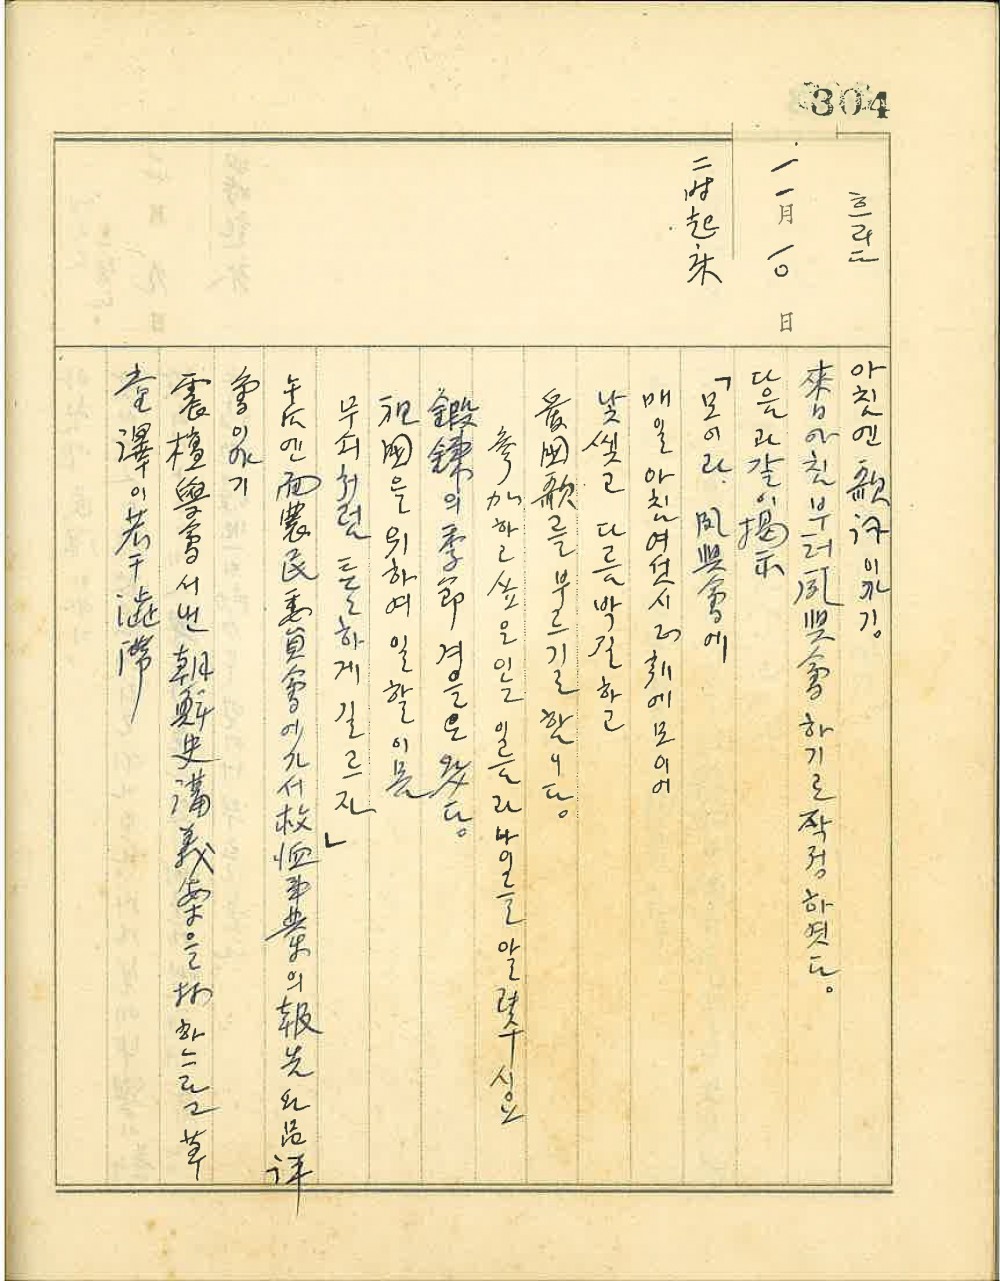 304
흐리다
一一月 一〇日
二時起床
아침엔 歌評이야기。
來日아침부터 夙興會 하기로 작정하엿다。
다음과갈이 揭示
「모이라 夙興會에
매일아침 여섯시 에모이어
낯씻고 다름박질하고
愛國歌를 부르기로 합니다。
參加하고싶은이는 이름과 나이를 알려주십시요
鍛鍊의 季節 겨을은 왔다。
祖國을 위하여 일할 이몸
무쇠처럼 튼튼하게 길르자」
午后엔 面農民委員會에가서 救恤事業의 報告와 品評
會이야기
震檀學會서낸 朝鮮史講義案을 하느라고 草
堂譯이 若干 澁滯